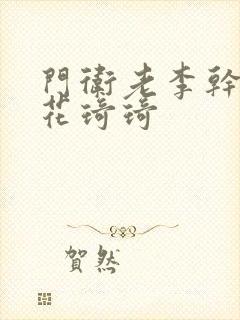 門衛老李幹
花琦琦
賀然